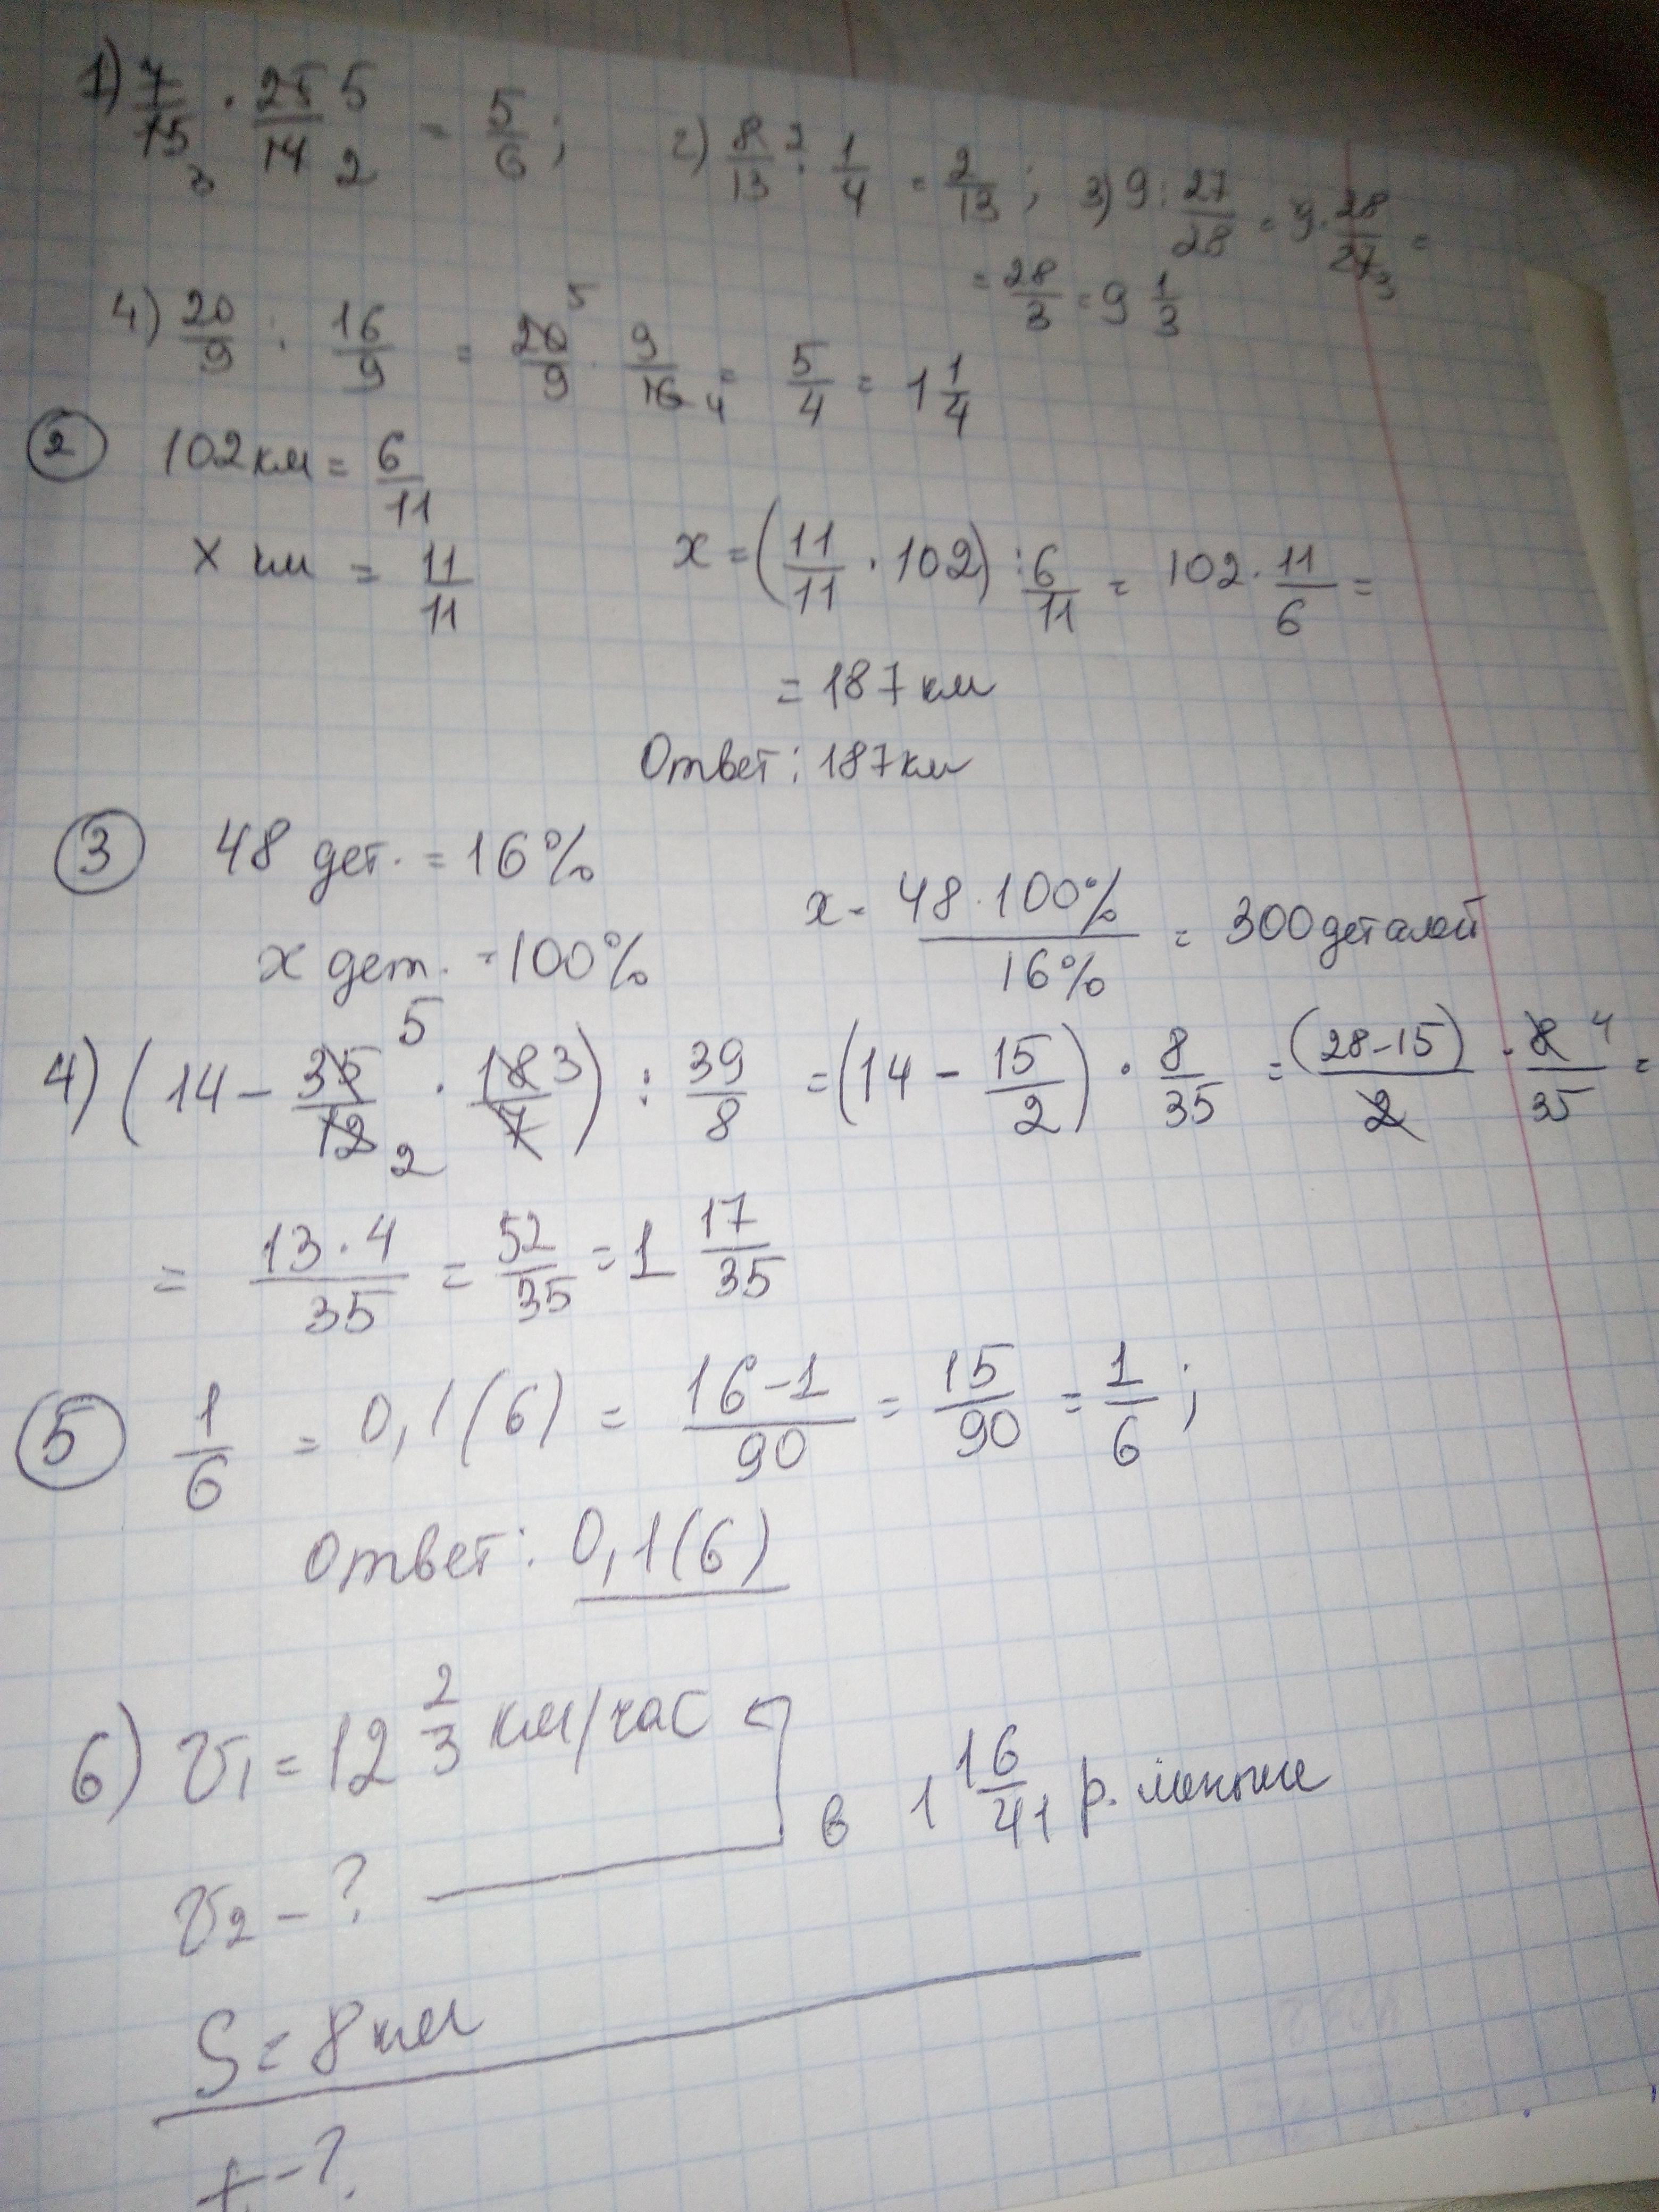 1) 7/15 3 · 25 5/14 2 = 5/6; 2) 8 2/13 · 1/4 = 2/13; 3) 9 : 27/28 = 9 · 28/27 3 =
= 28/3 = 9 1/3
4) 20/9 : 16/9 = 20 5/9 · 9/16 4 = 5/4 = 1 1/4
2 102 км = 6/11
x км = 11/11 x = (11/11 · 102) : 6/11 = 102 · 11/6 =
= 187 км
Ответ: 187 км
3 48 дет. = 16%
x дет. = 100% x = 48 · 100%/16% = 300 деталей
4) (14 - 35 5/12 2 · 18 3/7) : 39/8 = (14 - 15/2) · 8/35 = (28-15)/2 · 8 4/35 =
= 13 · 4/35 = 52/35 = 1 17/35
5 1/6 = 0,1(6) = 16-1/90 = 15/90 = 1/6;
Ответ: 0,1(6)
6) V1 = 12 2/3 км/час
в 1 16/41 р. меньше
V2 - ?
S = 8 км
t - ?